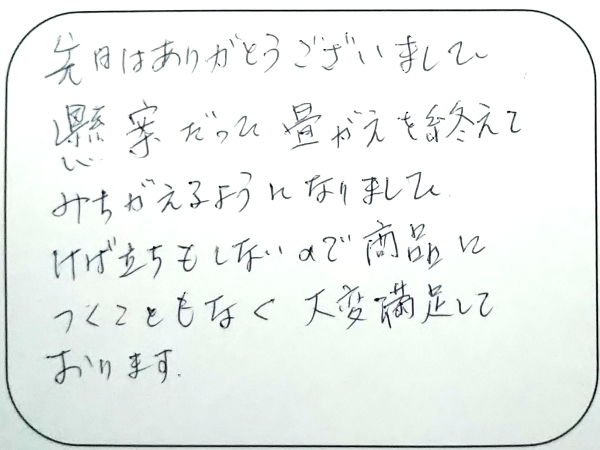 先日はありがとうございました
懸案だった畳がえを終えて
みちがえるようになりました
けば立ちもしないので商品に
つくこともなく大変満足して
おります.